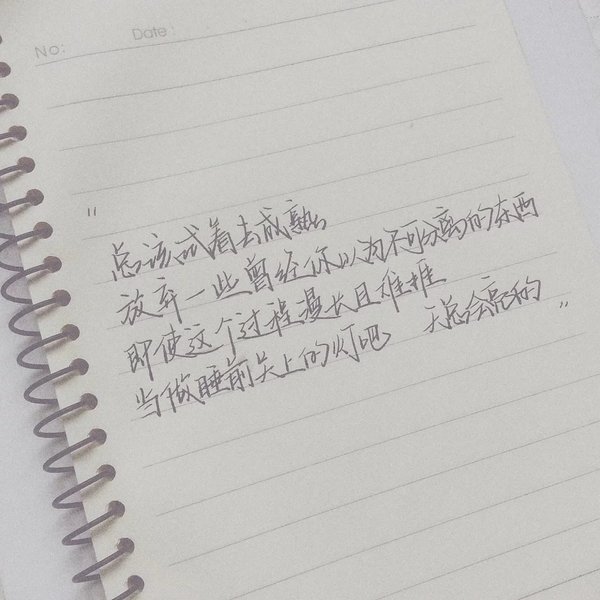 No:
Date:
"
总该试着去成熟
放弃一些曾经你以为不可分离的东西
即使这个过程漫长且难堆
当做睡前关上的灯吧 天总会亮的"